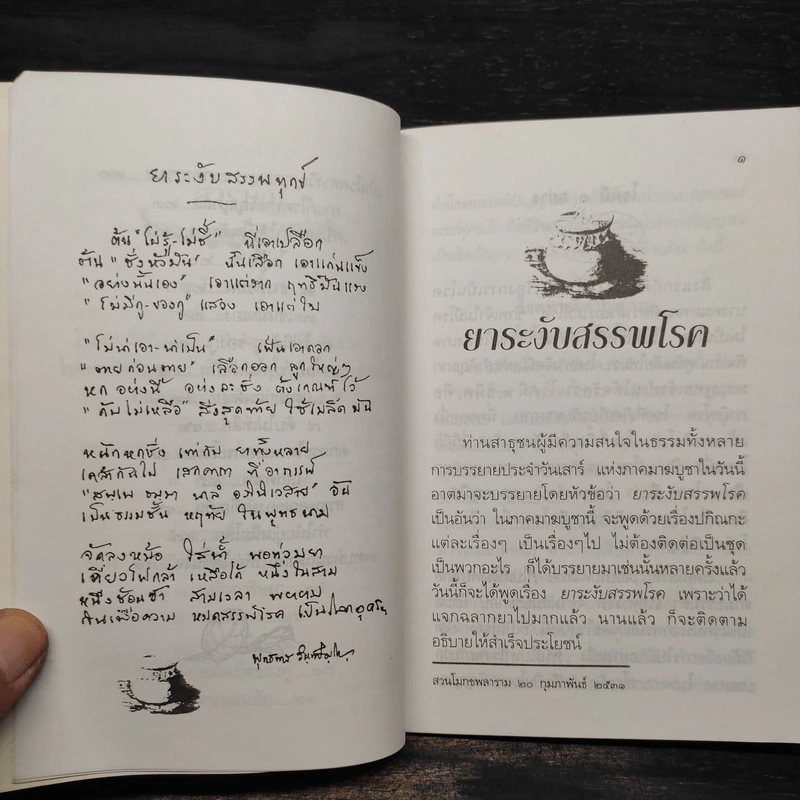 ยาระงับสรรพทุกข์
ต้น "ไม่รู้-ไม่ชี้" นี่เอาเปลือก
ต้น "ชั่งหัวมัน" นั้นเลือก เอาแก่นแข็ง
"อย่างนั้นเอง" เอาแต่ราก ฤทธิ์มันแรง
"ไม่มีกู-ของกู" แสวง เอาแต่ใบ
"ไม่น่าเอา-น่าเป็น" เฟ้นเอาดอก
"ตายก่อนตาย" เลือกออก ลูกใหญ่ๆ
หกอย่างนี้ อย่างละชั่ง ตั้งเกณฑ์ไว้
"ดับไม่เหลือ" สิ่งสุดท้าย ใช้เมล็ดมัน
หนักหกชั่ง เท่ากับ ยาทั้งหลาย
เคล้ากันไป เสกคาถา ที่อาถรรพ์
"สพฺเพ ธมฺมา นาลํ อภินิเวสาย" อัน
เป็นธรรมชั้น หฤทัย ในพุทธนาม
จัดลงหม้อ ใส่น้ำ พอท่วมยา
เคี่ยวไฟกล้า เหลือได้ หนึ่งในสาม
หนึ่งช้อนชา สามเวลา พยายาม
กินเพื่อความ หมดสรรพโรค เป็นโลกอุดร
พุทธทาส อินทปัญโญ
๑
ยาระงับสรรพโรค
ท่านสาธุชนผู้มีความสนใจในธรรมทั้งหลาย
การบรรยายประจำวันเสาร์ แห่งภาคมาฆบูชาในวันนี้
อาตมาจะบรรยายโดยหัวข้อว่า ยาระงับสรรพโรค
เป็นอันว่า ในภาคมาฆบูชานี้ จะพูดด้วยเรื่องปกิณกะ
แต่ละเรื่องๆ เป็นเรื่องๆไป ไม่ต้องติดต่อเป็นชุด
เป็นพวกอะไร ก็ได้บรรยายมาเช่นนั้นหลายครั้งแล้ว
วันนี้ก็จะได้พูดเรื่อง ยาระงับสรรพโรค เพราะว่าได้
แจกฉลากยาไปมากแล้ว นานแล้ว ก็จะติดตาม
อธิบายให้สำเร็จประโยชน์
สวนโมกขพลาราม ๒๐ กุมภาพันธ์ ๒๕๓๑